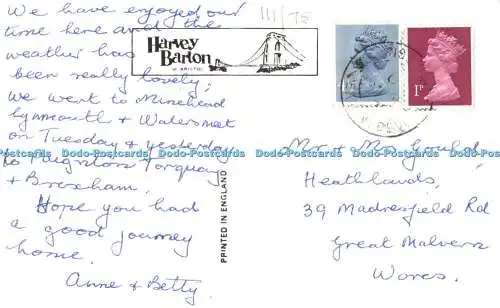 We have enjoyed our
time here and the
weather has
been really lovely;
we went to Minehead
Lynmouth & Watersmeet
on Tuesday & yesterday
to Torquay
& Brixham.
Hope you had
a good journey
home.
Anne & Betty.
111/75
Harvey
Barton
OF BRISTOL
1P
PRINTED IN ENGLAND
Mr & Mrs Gould,
Heathlands,
39 Madresfield Rd
Great Malvern
Worcs.
Dodo-Postcards Dodo-Postcards Dodo-Postcards Dodo-Postcards Dodo-Postcards Dodo-Postcards